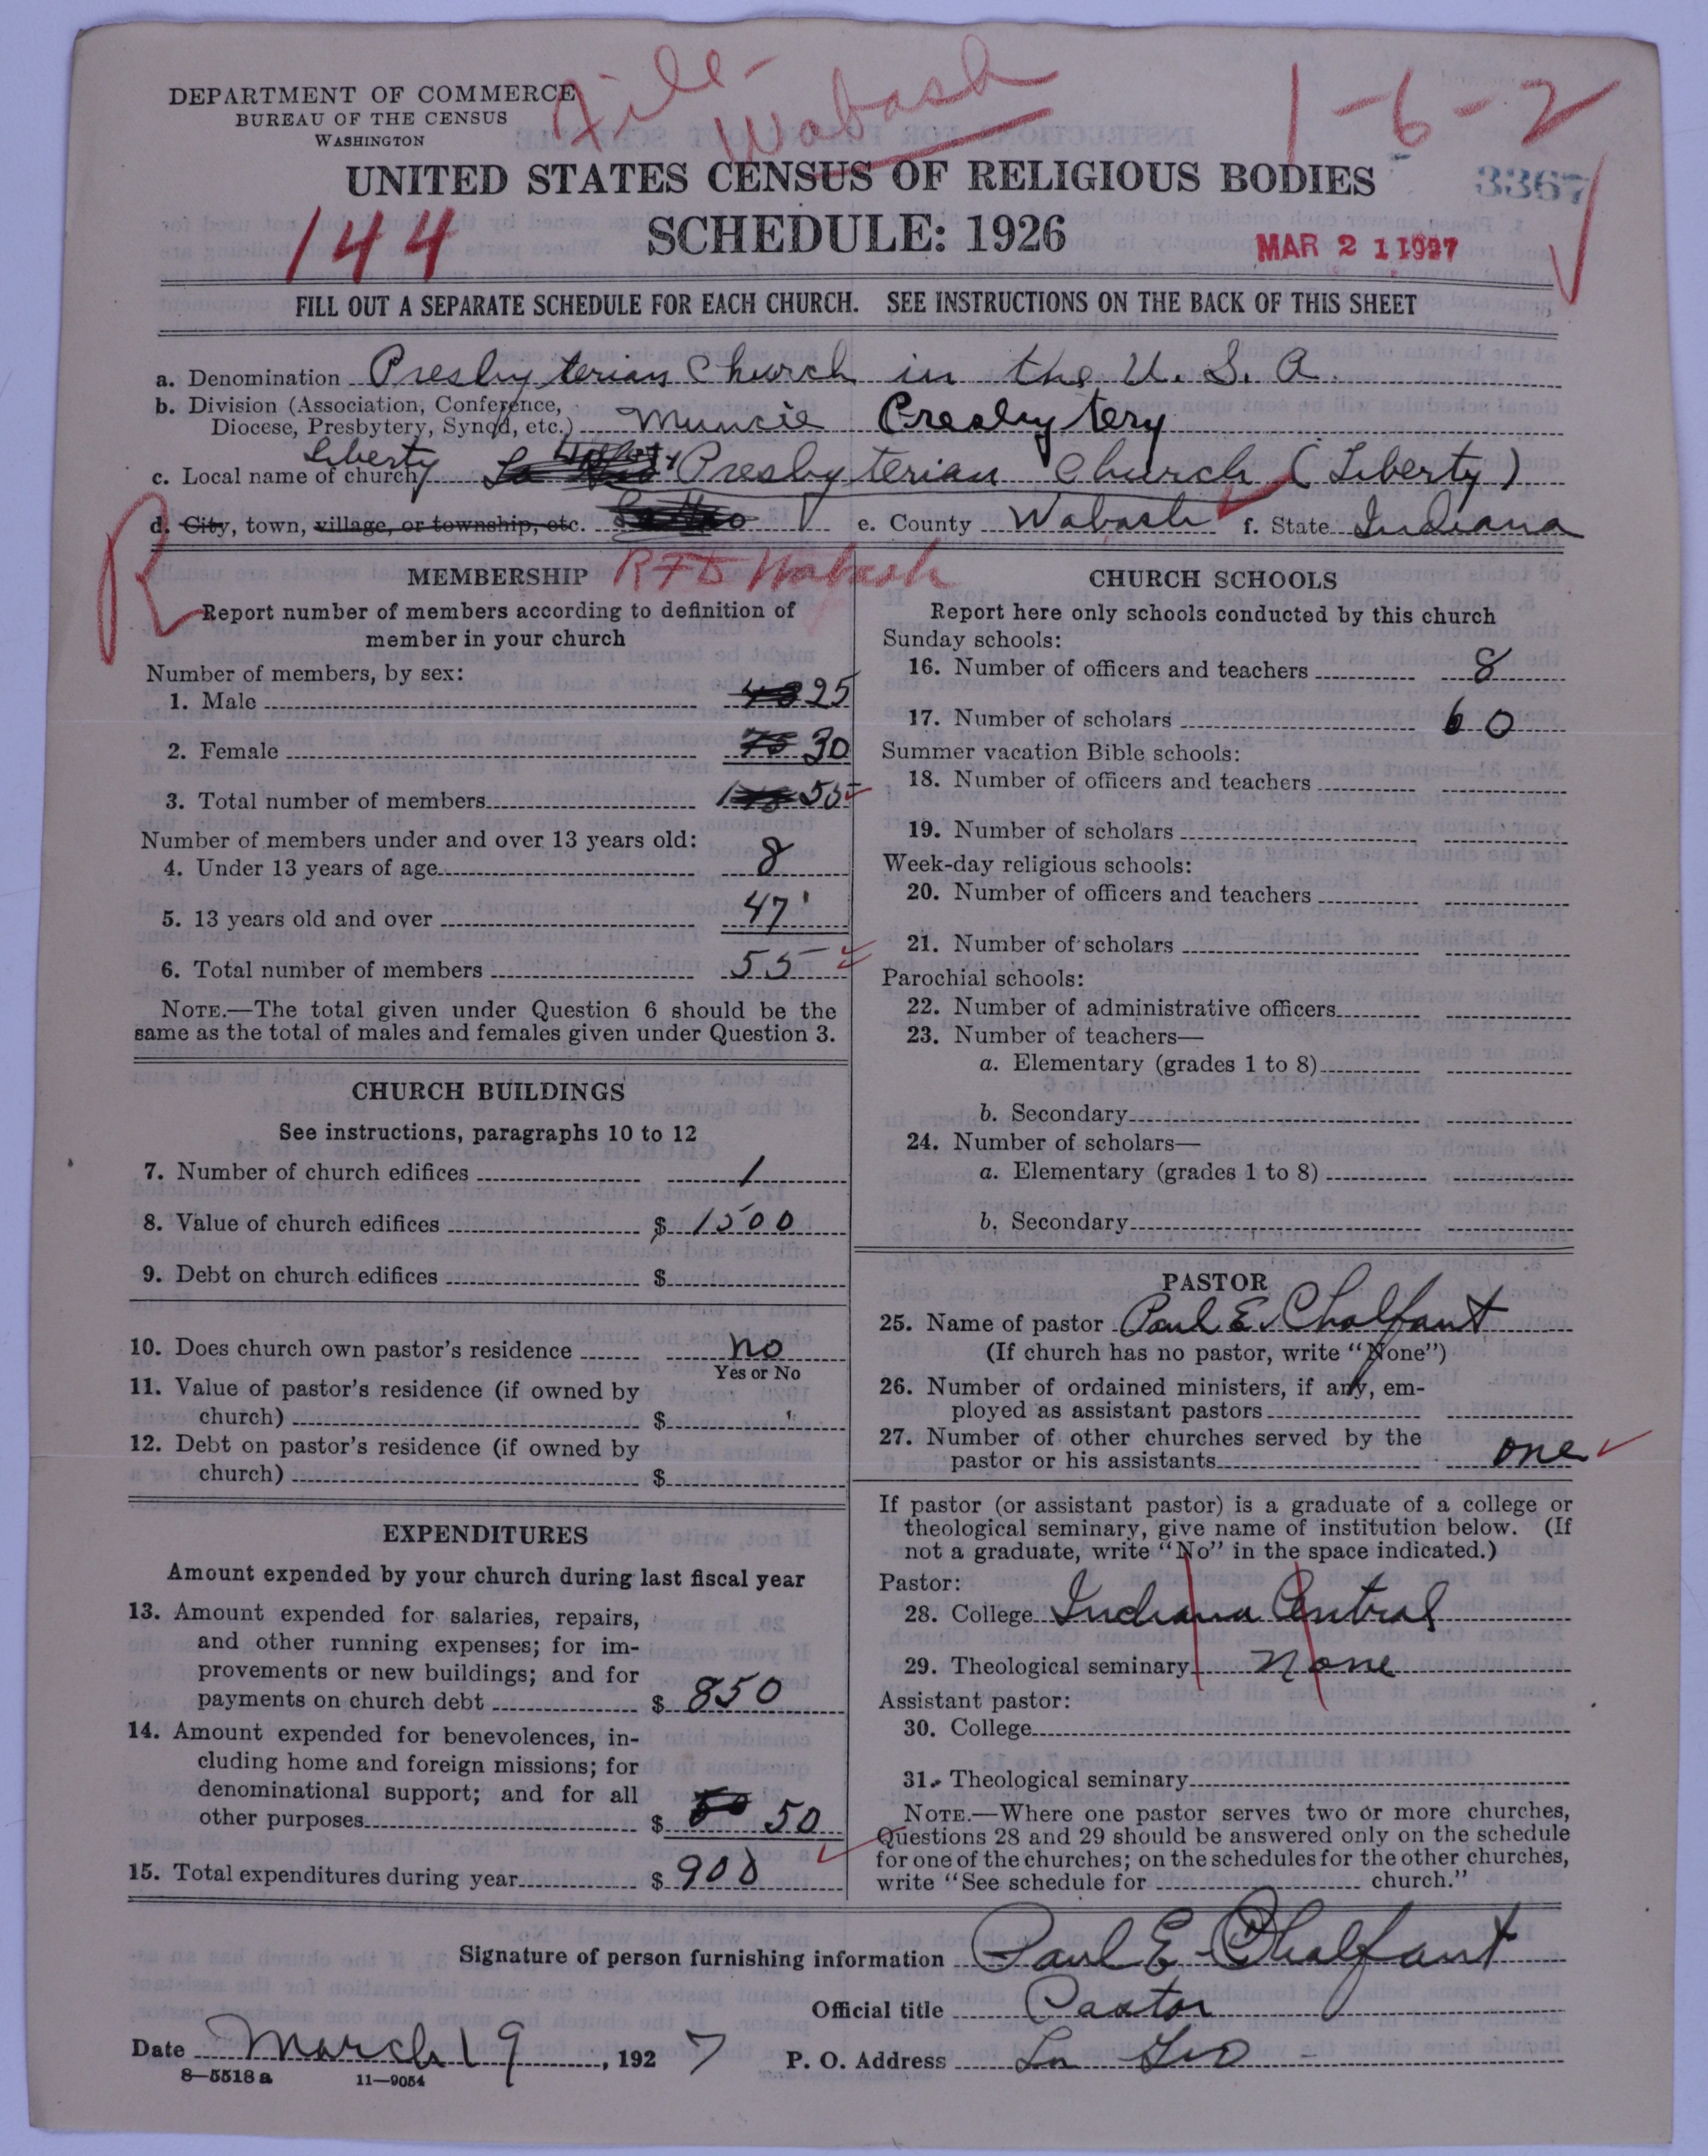 File-
Wabash
1-6-2
DEPARTMENT OF COMMERCE
BUREAU OF THE CENSUS
WASHINGTON
UNITED STATES CENSUS OF RELIGIOUS BODIES
3367
144
SCHEDULE: 1926
MAR 21 1927
FILL OUT A SEPARATE SCHEDULE FOR EACH CHURCH. SEE INSTRUCTIONS ON THE BACK OF THIS SHEET
a. Denomination Presbyterian Church in the U.S.A.
b. Division (Association, Conference,
Diocese, Presbytery, Synod, etc.) Muncie Presbytery
Liberty
c. Local name of church Presbyterian Church (Liberty)
d. City, town, village, or township, etc. e. County Wabash f. State Indiana
R
RFD Wabash
MEMBERSHIP
Report number of members according to definition of
member in your church
Number of members, by sex:
1. Male 25
2. Female 75 30
3. Total number of members 55
Number of members under and over 13 years old:
4. Under 13 years of age 8
5. 13 years old and over 47
6. Total number of members 55
NOTE.—The total given under Question 6 should be the
same as the total of males and females given under Question 3.
CHURCH BUILDINGS
See instructions, paragraphs 10 to 12
7. Number of church edifices 1
8. Value of church edifices $ 1500
9. Debt on church edifices $
10. Does church own pastor's residence no
Yes or No
11. Value of pastor's residence (if owned by
church) $
12. Debt on pastor's residence (if owned by
church) $
EXPENDITURES
Amount expended by your church during last fiscal year
13. Amount expended for salaries, repairs,
and other running expenses; for im-
provements or new buildings; and for
payments on church debt $ 850
14. Amount expended for benevolences, in-
cluding home and foreign missions; for
denominational support; and for all
other purposes $ 50 50
15. Total expenditures during year $ 900
CHURCH SCHOOLS
Report here only schools conducted by this church
Sunday schools:
16. Number of officers and teachers 8
17. Number of scholars 60
Summer vacation Bible schools:
18. Number of officers and teachers
19. Number of scholars
Week-day religious schools:
20. Number of officers and teachers
21. Number of scholars
Parochial schools:
22. Number of administrative officers
23. Number of teachers—
a. Elementary (grades 1 to 8)
b. Secondary
24. Number of scholars—
a. Elementary (grades 1 to 8)
b. Secondary
PASTOR
25. Name of pastor Paul E. Chalfant
(If church has no pastor, write "None")
26. Number of ordained ministers, if any, em-
ployed as assistant pastors
27. Number of other churches served by the
pastor or his assistants one
If pastor (or assistant pastor) is a graduate of a college or
theological seminary, give name of institution below. (If
not a graduate, write "No" in the space indicated.)
Pastor:
28. College Indiana Central
29. Theological seminary None
Assistant pastor:
30. College
31. Theological seminary
NOTE.—Where one pastor serves two or more churches,
Questions 28 and 29 should be answered only on the schedule
for one of the churches; on the schedules for the other churches,
write "See schedule for church."
Signature of person furnishing information Paul E. Chalfant
Official title Pastor
Date March 19, 1927 P. O. Address La Gro
8—5518 a 11—9054